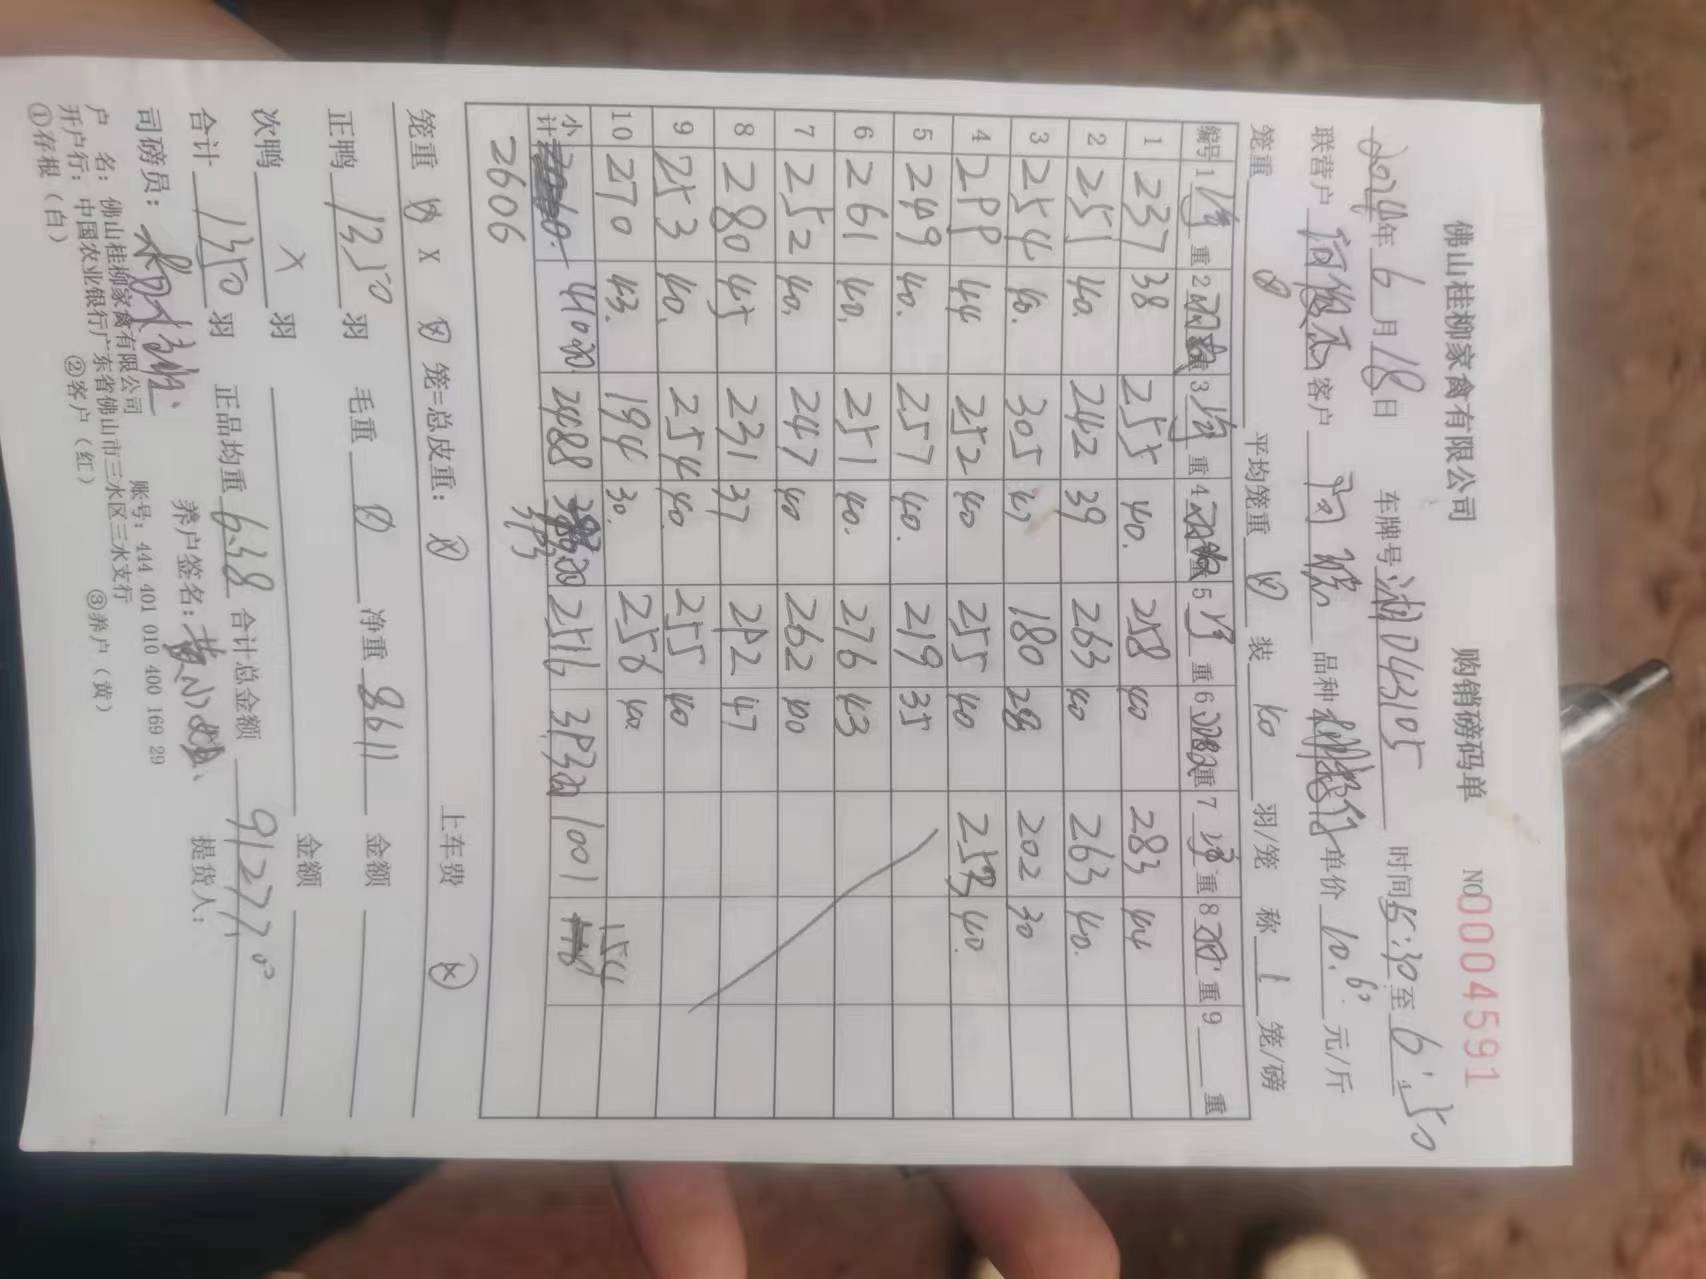 佛山桂柳家禽有限公司 购销磅码单 NO 00004591
2024年6月18日 车牌号 湘D43105 时间5:30至6:50
联营户 客户 品种 单价 10.60 元/斤
笼重 0 平均笼重 0 装 10 羽/笼 称 1 笼/磅
编号 1 净重 2 重 3 净重 4 重 5 净重 6 重 7 净重 8 重 9 重
1 237 38 255 40. 258 40 283 44
2 251 40. 242 39 263 40 263 40.
3 254 40. 305 47 180 28 202 30
4 299 44 252 40 255 40 253 40.
5 249 40. 257 40. 219 35
6 261 40. 251 40. 276 43
7 252 40. 247 40 262 40
8 280 45 231 37 292 47
9 253 40. 254 40. 255 40
10 270 43. 194 30. 256 40
小计 410羽 2488 393 2516 393羽 1001 154
2606
笼重 0 X 0 笼=总皮重: 0 上车费 0
正鸭 1350 羽 毛重 0 净重 8611 金额
次鸭 X 羽 金额
合计 1350 羽 正品均重 6.38 合计总金额 91277.00
司磅员: 养户签名: 提货人:
户 名: 佛山桂柳家禽有限公司 账号: 444 401 010 400 169 29
开户行: 中国农业银行广东省佛山市三水区三水支行
①存根（白） ②客户（红） ③养户（黄）